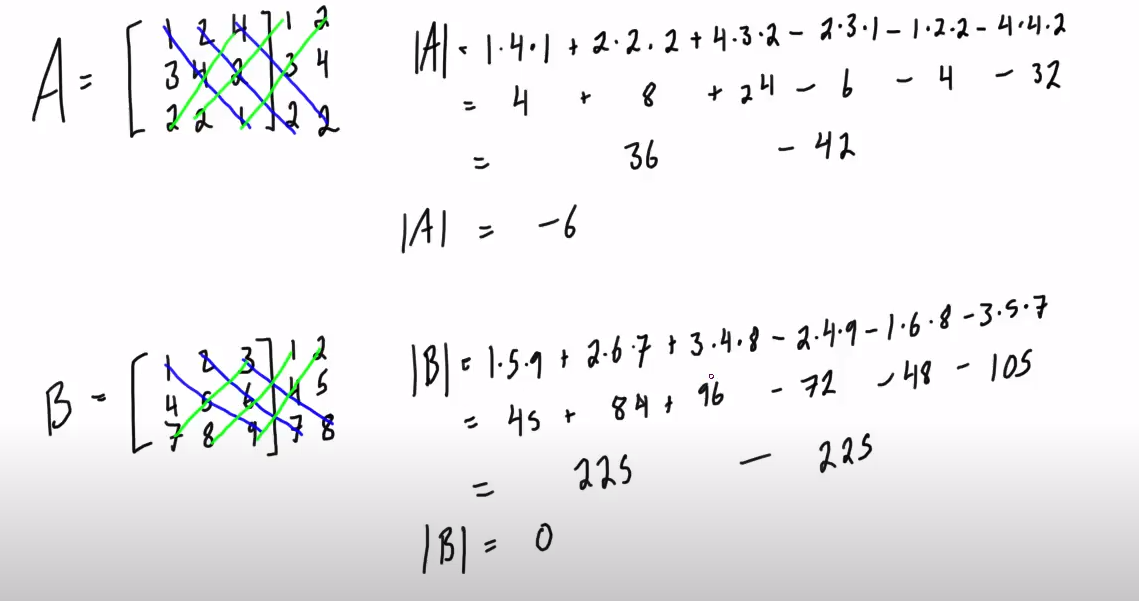 1 2 4 1 2
A = [ 3 4 2 ] 3 4
2 2 1 2 2
|A| = 1·4·1 + 2·2·2 + 4·3·2 − 2·3·1 − 1·2·2 − 4·4·2
= 4 + 8 + 24 − 6 − 4 − 32
= 36 − 42
|A| = −6
1 2 3 1 2
B = [ 4 5 6 ] 4 5
7 8 9 7 8
|B| = 1·5·9 + 2·6·7 + 3·4·8 − 2·4·9 − 1·6·8 − 3·5·7
= 45 + 84 + 96 − 72 − 48 − 105
= 225 − 225
|B| = 0